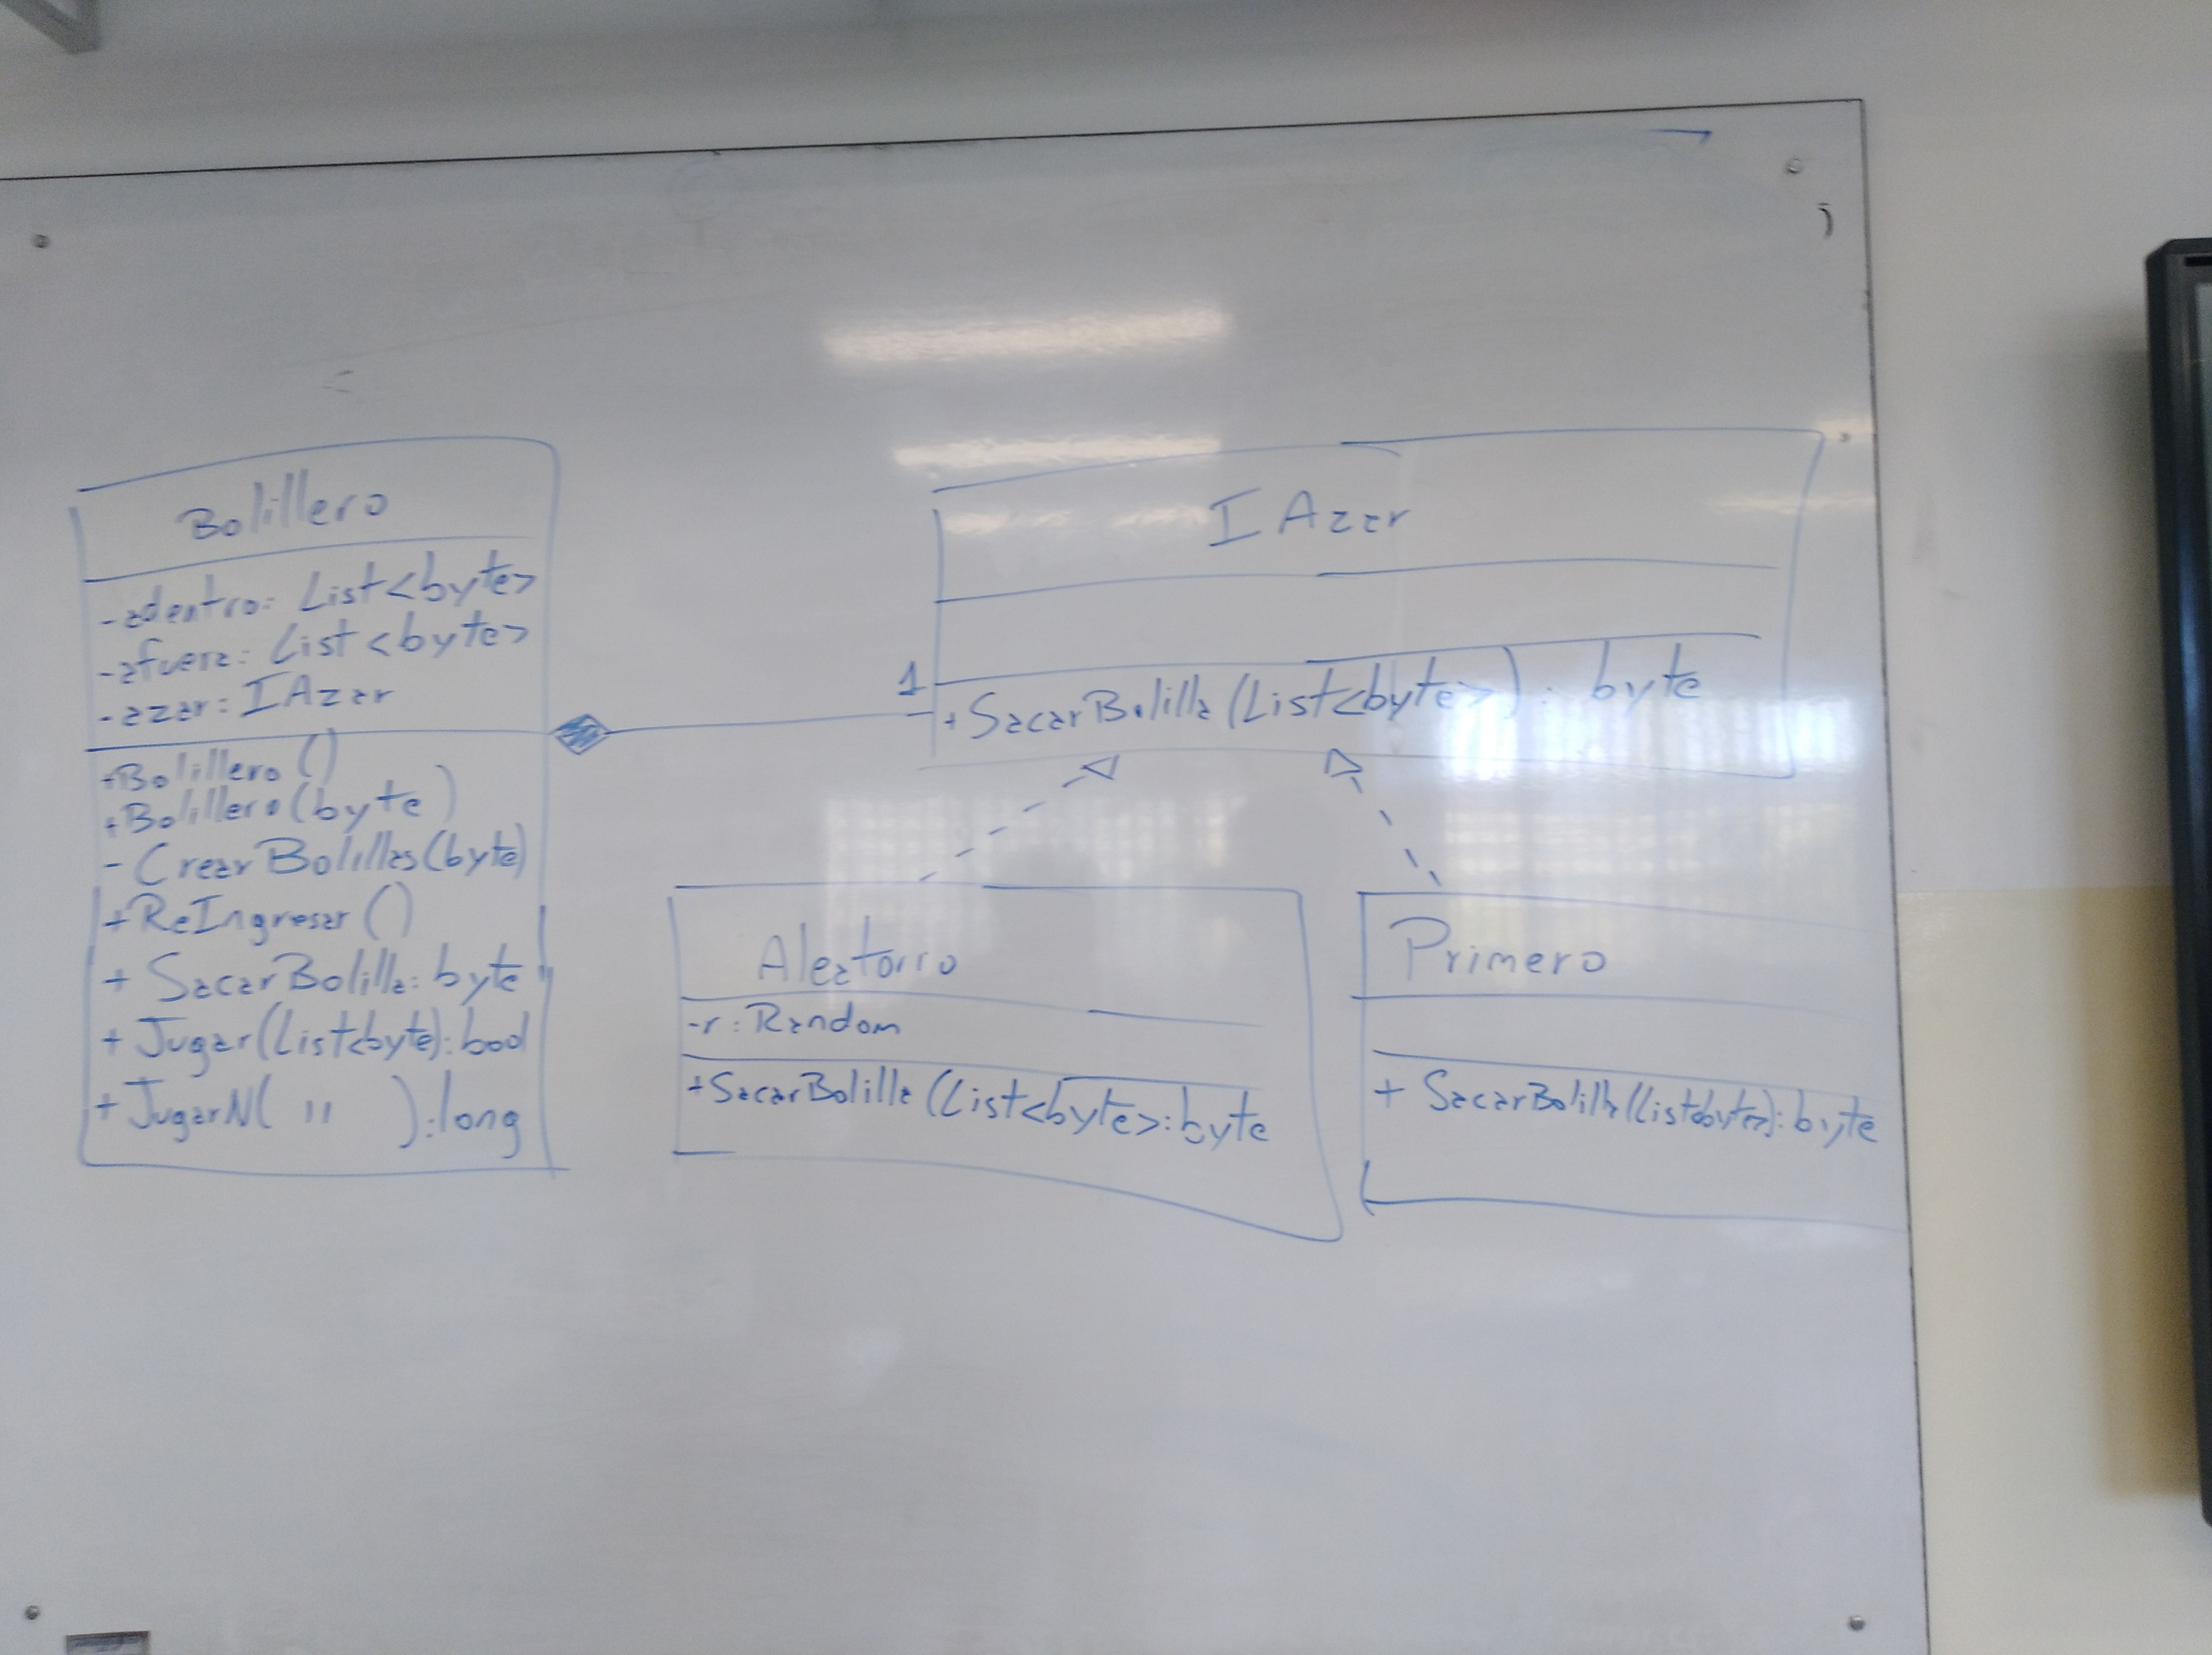 Bolillero
-adentro: List<byte>
-afuera: List<byte>
-azar: IAzar
+Bolillero()
+Bolillero(byte)
- CrearBolillas(byte)
+ReIngresar()
+ SacarBolilla: byte
+ Jugar(List<byte): bool
+ JugarN( " ): long
1
IAzar
+SacarBolilla (List<byte>): byte
Aleatorio
-r: Random
+SacarBolilla (List<byte>: byte
Primero
+ SacarBolilla(List<byte>): byte